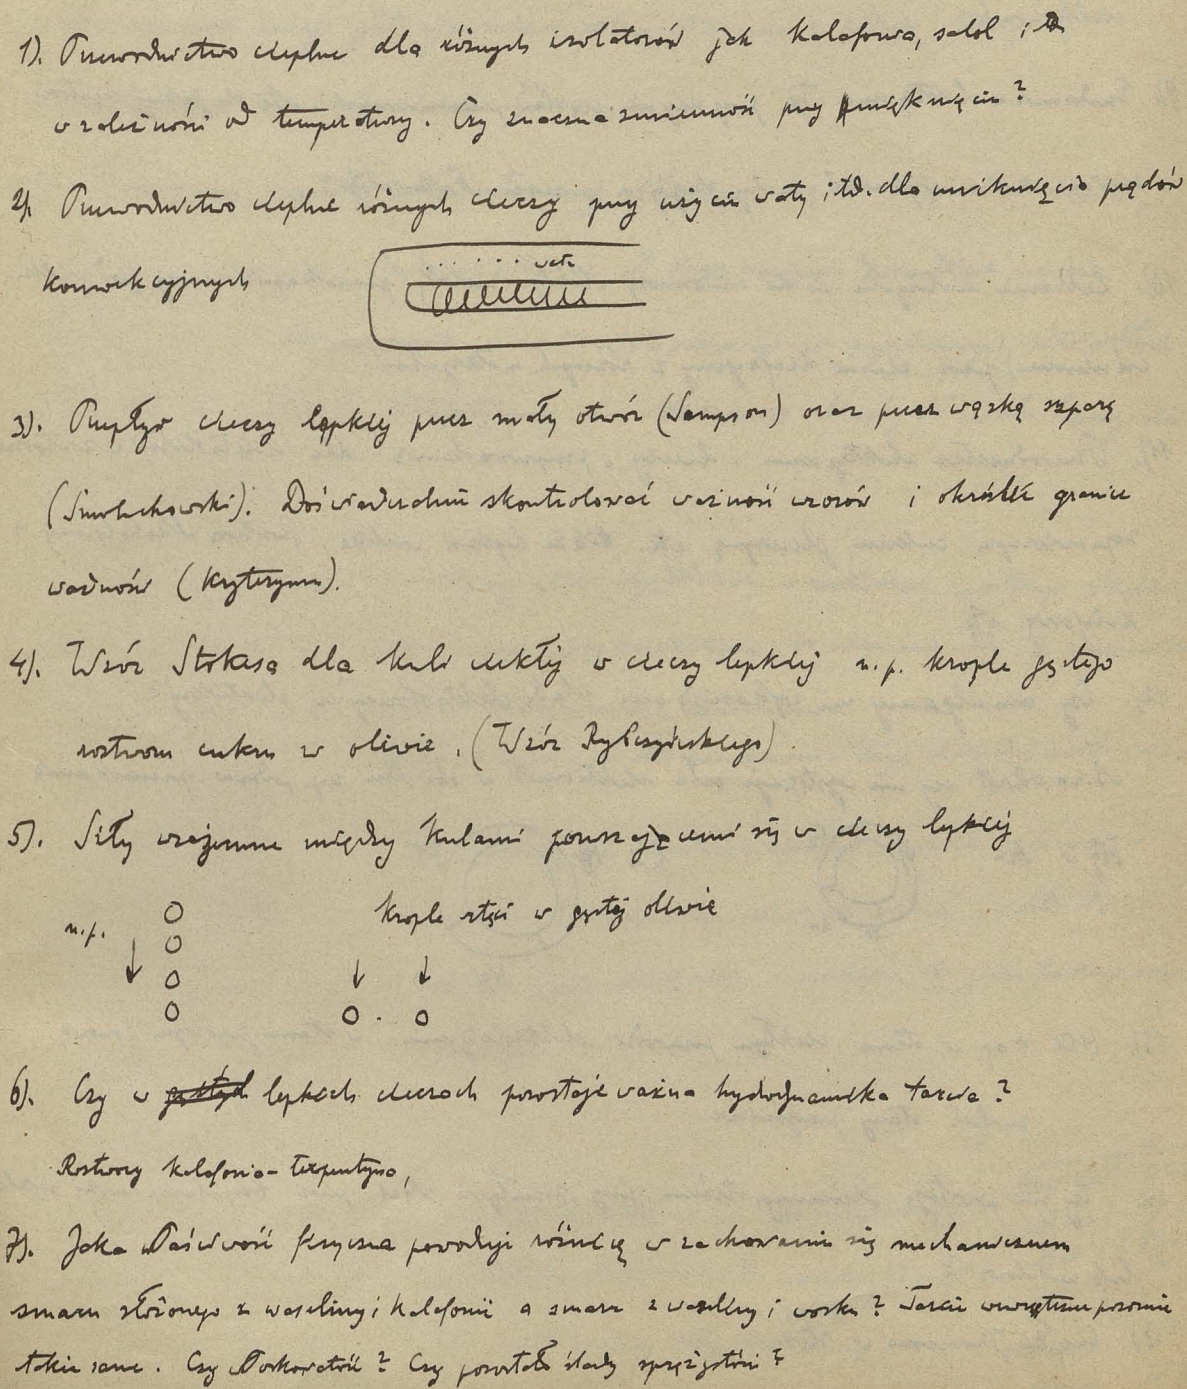 1). Przewodnictwo cieplne dla różnych izolatorów jak kalafonia, salol itd
w zależności od temperatury. Czy znaczna zmienność przy mięknięciu?
2). Przewodnictwo cieplne różnych cieczy przy użyciu waty itd. dla uniknięcia prądów
konwekcyjnych
wata
3). Przepływ cieczy lepkiej przez mały otwór (Sampson) oraz przez wąską szparę
(Smoluchowski). Doświadczalnie skontrolować ważność wzorów i określić granice
ważności (kryteryum).
4). Wzór Stokesa dla kuli ciekłej w cieczy lepkiej n.p. krople gęstego
roztworu cukru w oliwie. (Wzór Rybczyńskiego)
5). Siły wzajemne między kulami poruszającemi się w cieczy lepkiej
n.p. krople rtęci w gęstej oliwie
6). Czy w gęstych lepkich cieczach pozostaje ważna hydrodynamika tarcia?
Roztwory kalafonia-terpentyna,
7). Jaka własciwość fizyczna powoduje różnicę w zachowaniu się mechanicznem
smaru złożonego z waseliny i kalafonii a smaru z waseliny i wosku? Tarcie wewnętrzne pozornie
takie same. Czy włoskowatość? Czy pozostałe ślady sprężystości?